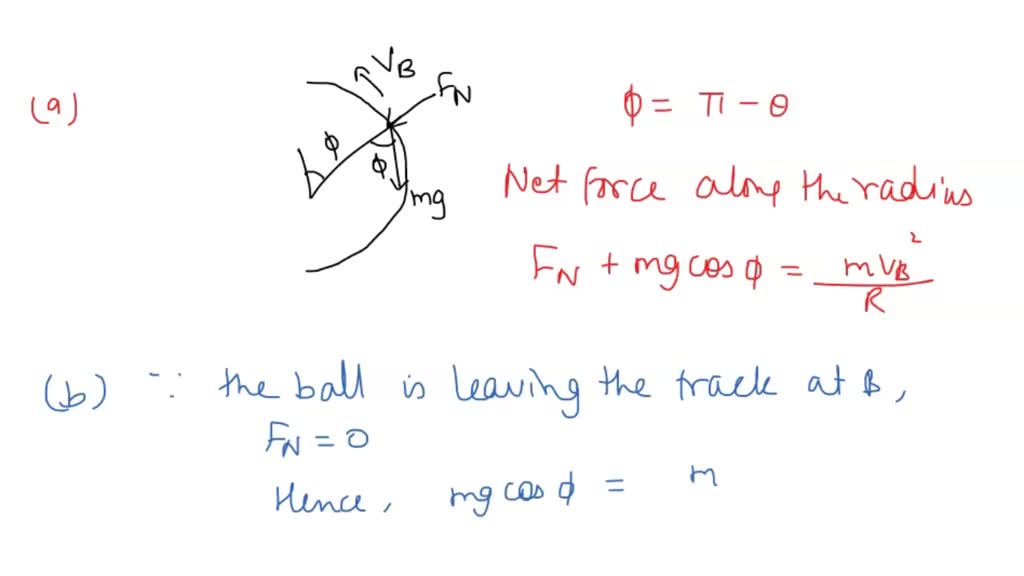 (a)
V_B
F_N
φ
φ
mg
φ = π - θ
Net force along the radius
F_N + mg cos φ = m V_B² / R
(b) ∵ the ball is leaving the track at B,
F_N = 0
Hence, mg cos φ = m